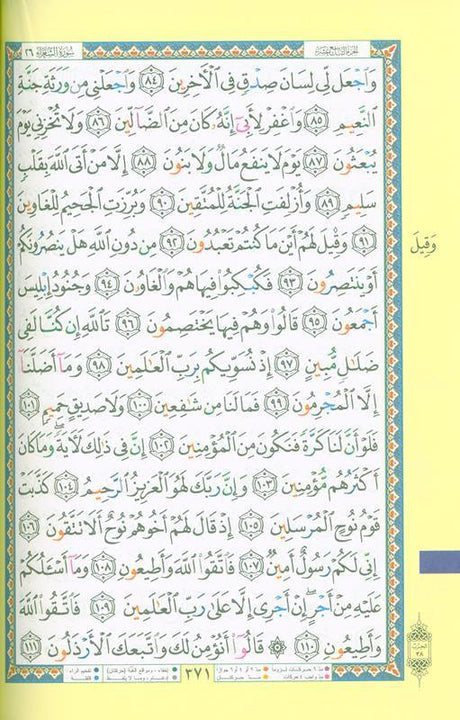 سُورَةُ الشُّعَرَاءِ ٢٦
الجزء التاسع عشر
وَٱجْعَل لِّى لِسَانَ صِدْقٍ فِى ٱلْأَخِرِينَ ٨٤ وَٱجْعَلْنِى مِن وَرَثَةِ جَنَّةِ
ٱلنَّعِيمِ ٨٥ وَٱغْفِرْ لِأَبِىٓ إِنَّهُۥ كَانَ مِنَ ٱلضَّآلِّينَ ٨٦ وَلَا تُخْزِنِى يَوْمَ
يُبْعَثُونَ ٨٧ يَوْمَ لَا يَنفَعُ مَالٌ وَلَا بَنُونَ ٨٨ إِلَّا مَنْ أَتَى ٱللَّهَ بِقَلْبٍ
سَلِيمٍ ٨٩ وَأُزْلِفَتِ ٱلْجَنَّةُ لِلْمُتَّقِينَ ٩٠ وَبُرِّزَتِ ٱلْجَحِيمُ لِلْغَاوِينَ
٩١ وَقِيلَ لَهُمْ أَيْنَ مَا كُنتُمْ تَعْبُدُونَ ٩٢ مِن دُونِ ٱللَّهِ هَلْ يَنصُرُونَكُمْ
أَوْ يَنتَصِرُونَ ٩٣ فَكُبْكِبُوا۟ فِيهَا هُمْ وَٱلْغَاوُۥنَ ٩٤ وَجُنُودُ إِبْلِيسَ
أَجْمَعُونَ ٩٥ قَالُوا۟ وَهُمْ فِيهَا يَخْتَصِمُونَ ٩٦ تَٱللَّهِ إِن كُنَّا لَفِى
ضَلَٰلٍ مُّبِينٍ ٩٧ إِذْ نُسَوِّيكُم بِرَبِّ ٱلْعَٰلَمِينَ ٩٨ وَمَآ أَضَلَّنَآ
إِلَّا ٱلْمُجْرِمُونَ ٩٩ فَمَا لَنَا مِن شَٰفِعِينَ ١٠٠ وَلَا صَدِيقٍ حَمِيمٍ ١٠١
فَلَوْ أَنَّ لَنَا كَرَّةً فَنَكُونَ مِنَ ٱلْمُؤْمِنِينَ ١٠٢ إِنَّ فِى ذَٰلِكَ لَأَيَةً ۖ وَمَا كَانَ
أَكْثَرُهُم مُّؤْمِنِينَ ١٠٣ وَإِنَّ رَبَّكَ لَهُوَ ٱلْعَزِيزُ ٱلرَّحِيمُ ١٠٤ كَذَّبَتْ
قَوْمُ نُوحٍ ٱلْمُرْسَلِينَ ١٠٥ إِذْ قَالَ لَهُمْ أَخُوهُمْ نُوحٌ أَلَا تَتَّقُونَ ١٠٦
إِنِّى لَكُمْ رَسُولٌ أَمِينٌ ١٠٧ فَٱتَّقُوا۟ ٱللَّهَ وَأَطِيعُونِ ١٠٨ وَمَآ أَسْـَٔلُكُمْ
عَلَيْهِ مِنْ أَجْرٍ ۖ إِنْ أَجْرِىَ إِلَّا عَلَىٰ رَبِّ ٱلْعَٰلَمِينَ ١٠٩ فَٱتَّقُوا۟ ٱللَّهَ
وَأَطِيعُونِ ١١٠ ۞ قَالُوٓا۟ أَنُؤْمِنُ لَكَ وَٱتَّبَعَكَ ٱلْأَرْذَلُونَ ١١١
وَقِيلَ
الحزب
٣٨
٣٧١